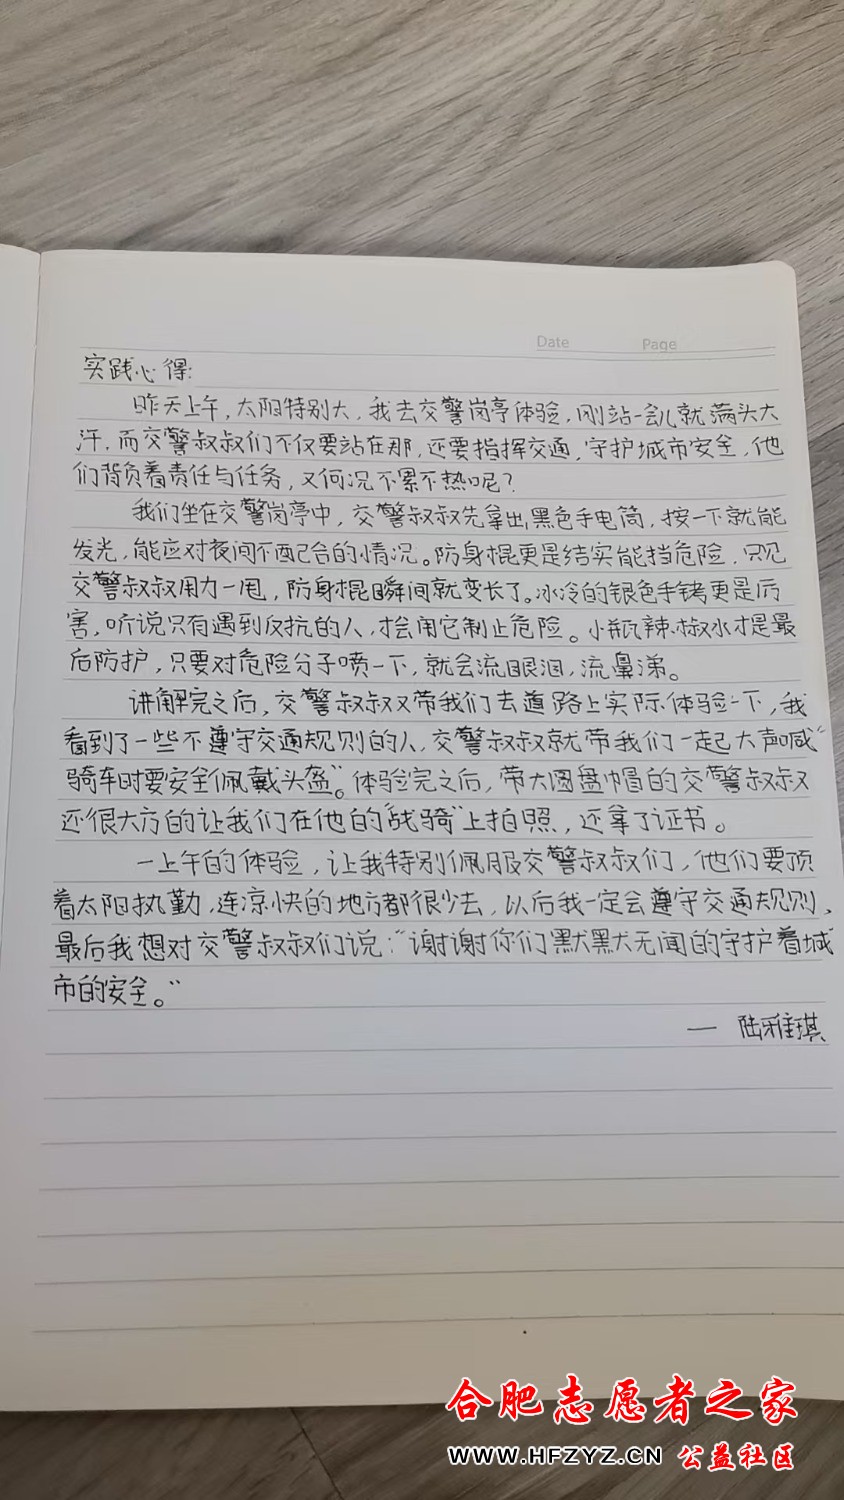 Date
Page
实践心得:
昨天上午,太阳特别大,我去交警岗亭体验,刚站一会儿就满头大
汗,而交警叔叔们不仅要站在那,还要指挥交通,守护城市安全,他
们背负着责任与任务,又何况不累不热呢?
我们坐在交警岗亭中,交警叔叔先拿出黑色手电筒,按一下就能
发光,能应对夜间不配合的情况。防身棍更是结实能挡危险,只见
交警叔叔用力一甩,防身棍瞬间就变长了。冰冷的银色手铐更是厉
害,听说只有遇到反抗的人,才会用它制止危险。小瓶辣椒水才是最
后防护,只要对危险分子喷一下,就会流眼泪,流鼻涕。
讲解完之后,交警叔叔又带我们去道路上实际体验一下,我
看到了一些不遵守交通规则的人,交警叔叔就带我们一起大声喊“
骑车时要安全佩戴头盔”。体验完之后,带大圆盘帽的交警叔叔
还很大方的让我们在他的“战骑”上拍照,还拿了证书。
一上午的体验,让我特别佩服交警叔叔们,他们要顶
着太阳执勤,连凉快的地方都很少去,以后我一定会遵守交通规则,
最后我想对交警叔叔们说:“谢谢你们默默无闻的守护着城
市的安全。”
— 陆雅琪
合肥志愿者之家
WWW.HFZYZ.CN 公益社区